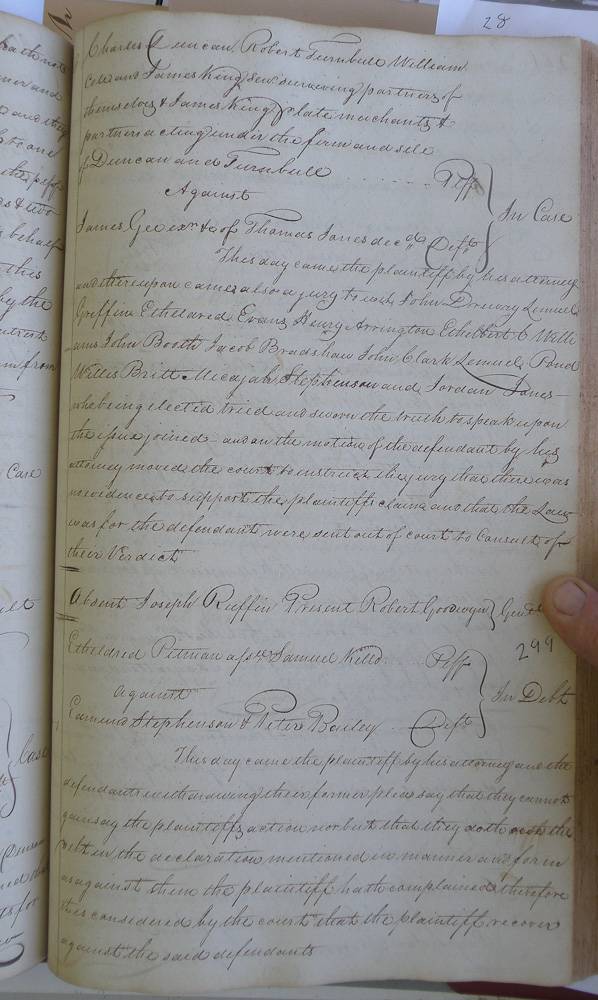 28
Charles Duncan Robert Turnbull William
Cole and James King Senr surviving partners of
themselves & James King late merchants &
partners acting under the firm and stile
of Duncan and Turnbull Plff
Against In Case
James Gee exr &c of Thomas Jones decd Deft
This day came the plaintiff by his attorney
and thereupon came also a jury to wit John Drewry Lemuel
Griffin Etheldred Evans Henry Arrington Ethelbert C Willi
ams John Booth Jacob Bradshaw John Clark Lemuel Pond
Willis Britt Micajah Stephenson and Jordan Jones
who being elected tried and sworn the truth to speak upon
the issue joined and on the motion of the defendant by his
attorney moved the court to instruct the jury that there was
no evidence to support the plaintiffs claim and that the Law
was for the defendant were sent out of court to Consult of
their Verdict
Absent Joseph Ruffin Present Robert Goodwyn Gent
299
Etheldred Pitman assee Samuel Plff
Against In Debt
Edmund Stephenson & Peter Bailey Deft
This day came the plaintiff by his attorney and the
defendants withdrawing their former pleas say that they cannot
gainsay the plaintiffs action nor but that they doth owe the
debt in the declaration mentioned in manner and form
as against them the plaintiff hath complained therefore
it is considered by the court that the plaintiff recover
against the said defendants